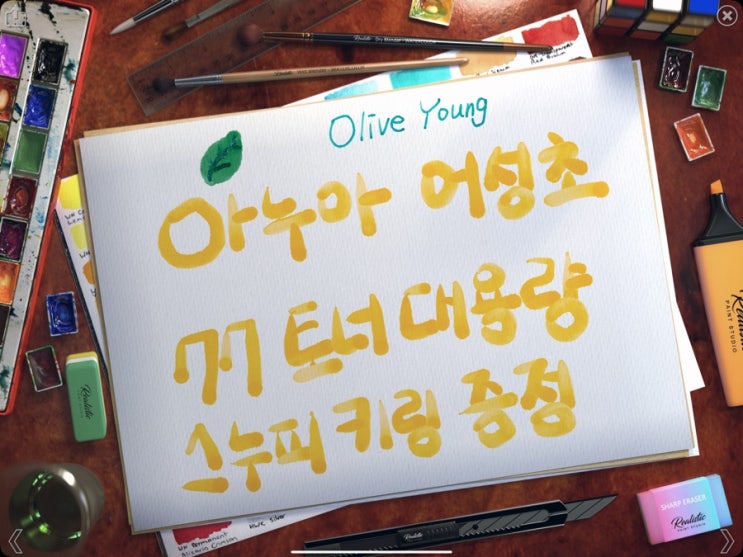 Olive Young
아누아 어성초
77 토너 대용량
스누피 키링 증정
Realistic
PAINT STUDIO
SHARP ERASER
Realistic
PAINT STUDIO
Realistic